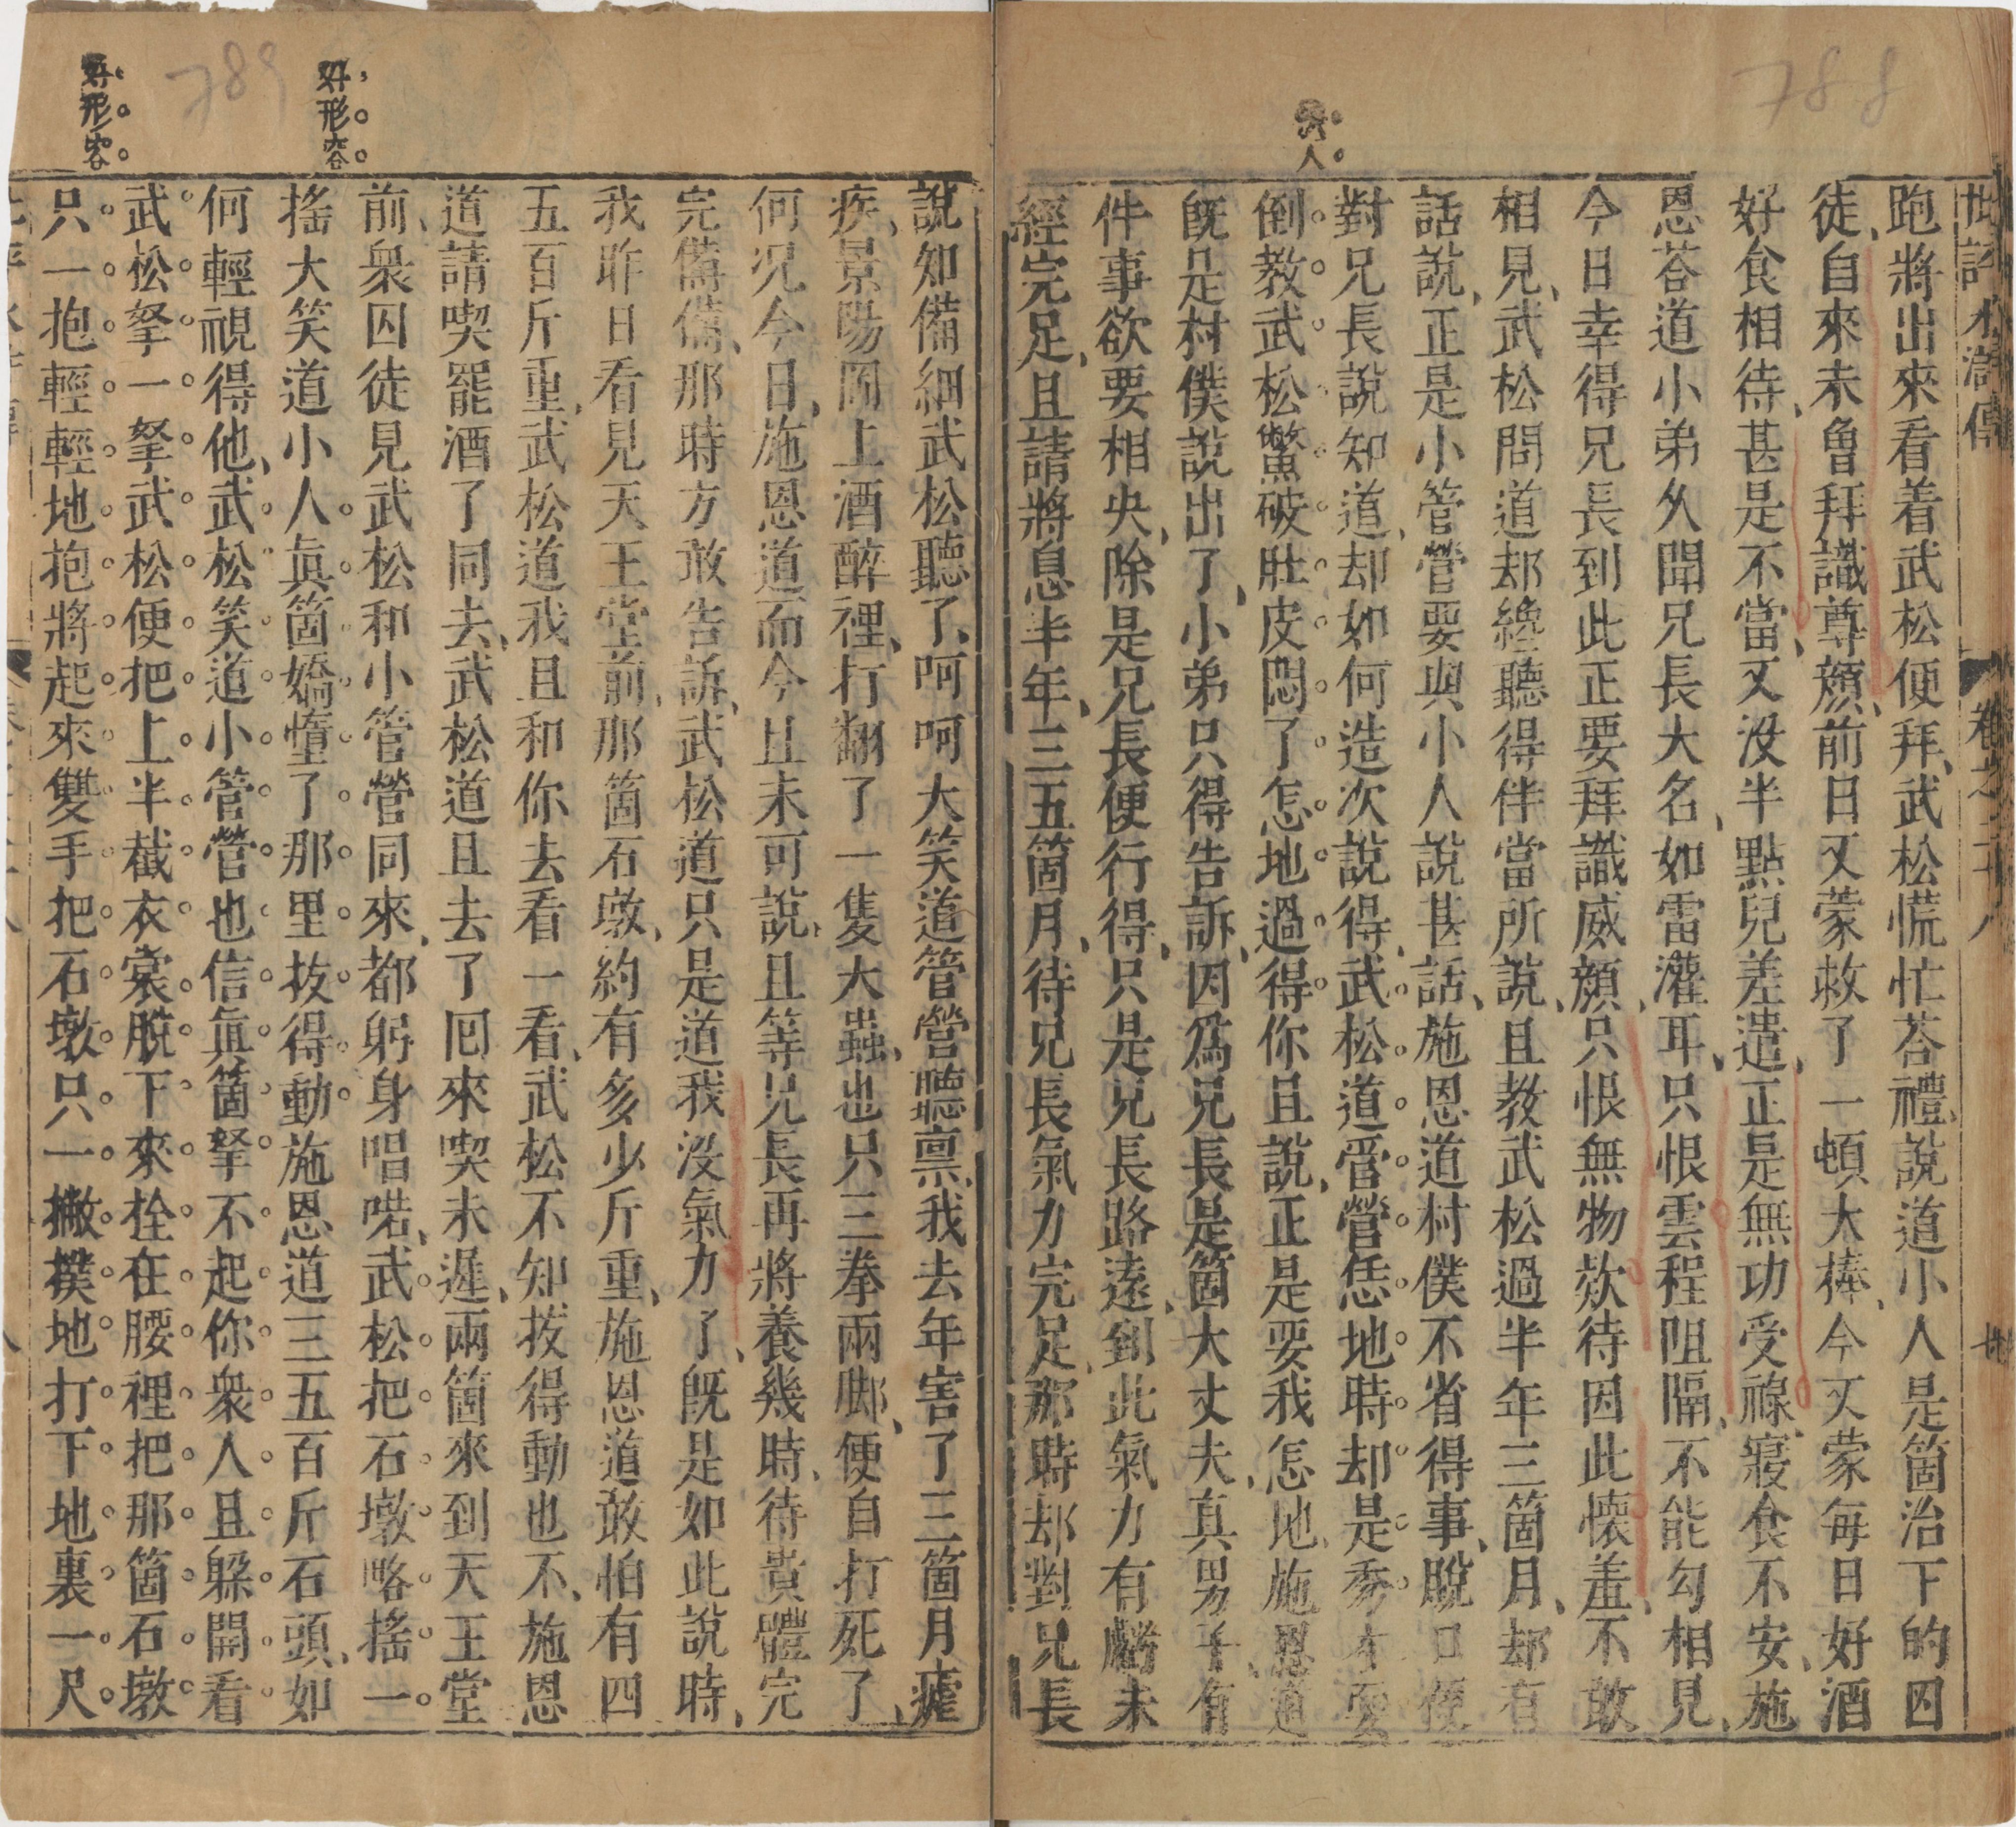 788
批評水滸傳 卷之二十八 廿
跑將出來看着武松便拜、武松慌忙荅禮、說道小人是箇治下的囚
徒、自來未魯拜識尊顏、前日又蒙救了一頓大棒、今又蒙每日好酒
好食相待、甚是不當、又没半點兒差遣、正是無功受祿、寢食不安、施
恩荅道小弟久聞兄長大名、如雷灌耳、只恨雲程阻隔、不能勾相見、
今日幸得兄長到此正要拜識威顏、只恨無物欵待因此懷羞、不敢
相見、武松問道却纔聽得伴當所說、且教武松過半年三箇月、却有
話說、正是小管營要與小人說甚話、施恩道村僕不省得事、脫口便
對兄長說知道、却如何造次說得、武松道管營恁地時却是秀才耍
倒教武松鱉破肚皮悶了怎地過得你且說、正是要我怎地、施恩道
旣是村僕說出了、小弟只得告訴、因爲兄長是箇大丈夫、真男子、有
件事欲要相央、除是兄長便行得、只是兄長路遠、到此氣力有虧未
經完足、且請將息半年、三五箇月、待兄長氣力完足、那時却對兄長
人
789
好形容
好形容
說知備細武松聽了、呵呵大笑道管營聽禀、我去年害了三箇月瘧
疾、景陽岡上酒醉裡、打翻了一隻大蟲、也只三拳兩脚、便自打死了、
何况今日、施恩道而今且未可說、且等兄長再將養幾時、待貴體完
完備備、那時方敢告訴、武松道只是道我没氣力了、旣是如此說時、
我昨日看見天王堂前、那箇石墩、約有多少斤重、施恩道敢怕有四
五百斤重、武松道我且和你去看一看、武松不知拔得動也不、施恩
道請喫罷酒了同去、武松道且去了囘來喫未遲、兩箇來到天王堂
前、衆囚徒見武松和小管營同來、都躬身唱喏、武松把石墩略搖一
搖大笑道小人真箇嬌惰了那里拔得動施恩道三五百斤石頭、如
何輕視得他、武松笑道小管營也信真箇拏不起你衆人且躲開看
武松拏一拏武松便把上半截衣裳脫下來拴在腰裡把那箇石墩
只一抱輕輕地抱將起來雙手把石墩只一撇撲地打下地裏一尺